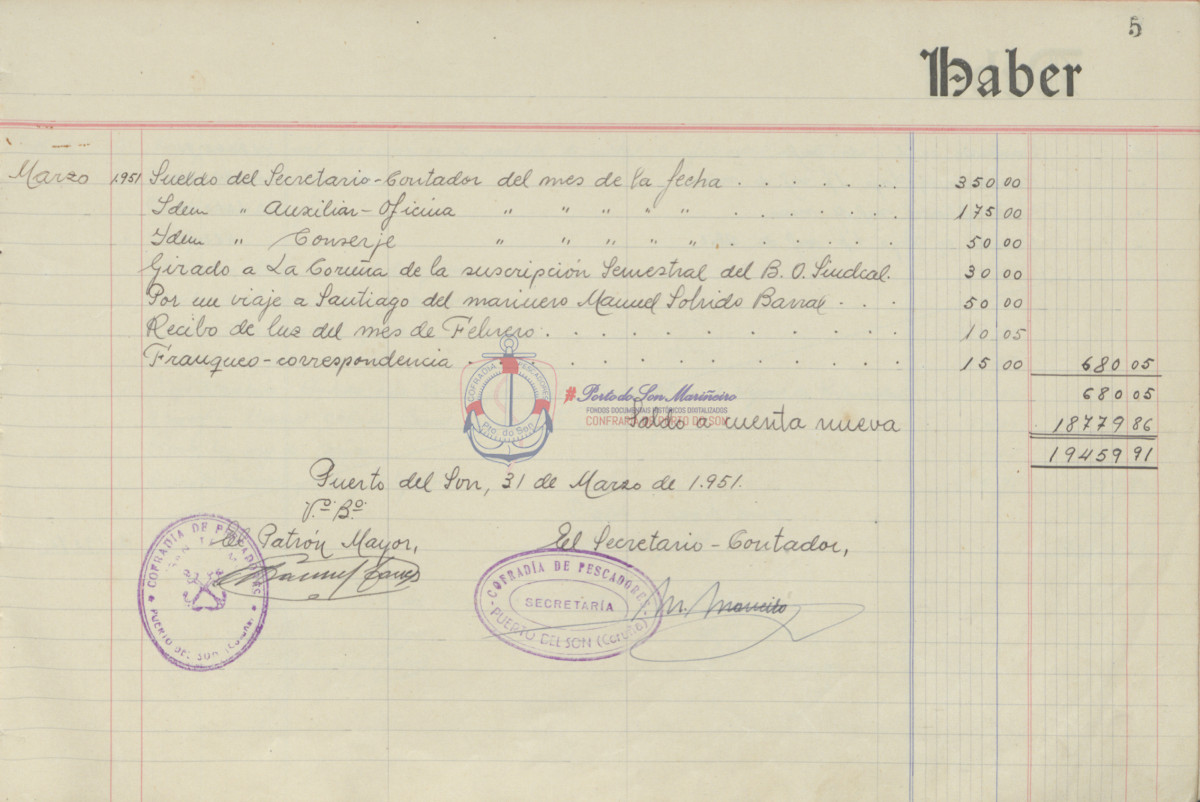 5
Haber
Marzo 1.951 Sueldo del Secretario-Contador del mes de la fecha . . . . . . 350 00
Idem " Auxiliar-Oficina " " " " " . . . . . . . 175 00
Idem " Conserje " " " " " . . . . . . . 50 00
Girado a La Coruña de la suscripción Semestral del B. O. Sindcal. 30 00
Por un viaje a Santiago del marinero Manuel Sobrido Barral . . . 50 00
Recibo de luz del mes de Febrero . . . . . . . . . . . 10 05
Franqueo-correspondencia . . . . . . . . . . . . 15 00 680 05
680 05
Saldo a cuenta nueva 18779 86
19459 91
COFRADÍA PESCADORES
Pto. do Son
#Porto do Son Mariñeiro
FONDOS DOCUMENTAIS HISTÓRICOS DIGITALIZADOS
CONFRARÍA PORTO DO SON
Puerto del Son, 31 de Marzo de 1.951.
V.º B.º
El Patrón Mayor, El Secretario-Contador,
COFRADÍA DE PESCADORES
PUERTO DEL SON
COFRADÍA DE PESCADORES
SECRETARÍA
PUERTO DEL SON (Coruña)